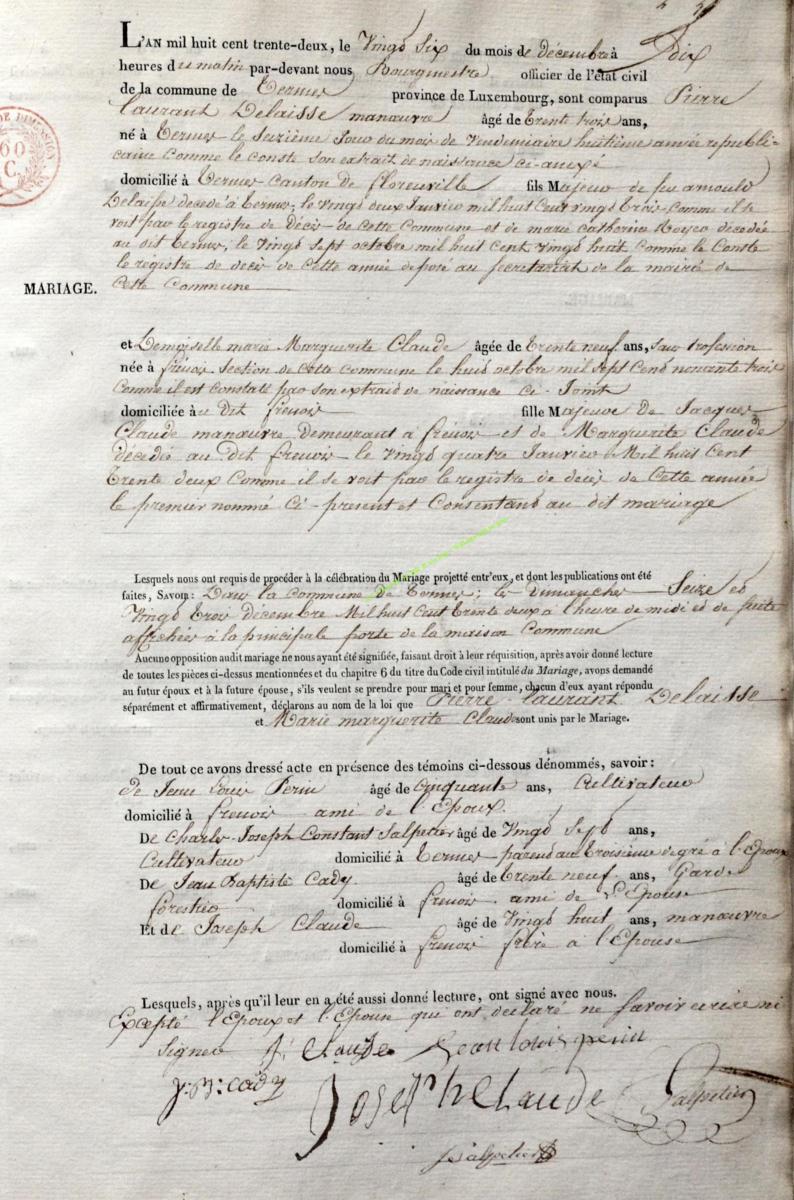 DE DIMENSION
60
C.
L'AN mil huit cent trente-deux, le Vingt Six du mois de décembre à Dix
heures du matin par-devant nous Bourgmestre officier de l'état civil
de la commune de Termes province de Luxembourg, sont comparus Pierre
laurant Delaisse manœuvre âgé de trente trois ans,
né à Termes le Sixième Jour du mois de Vendemiaire huitième année republi-
caine comme le conste son extrait de naissance ci-anexé
domicilié à Termes Canton de florenville fils Majeur de feu arnould
Delaisse décedé à Termes, le Vingt deux Janvier mil huit Cent Vingt trois comme il se
voit par le registre de Décès de cette Commune et de marie catherine décedée
au dit Termes, le Vingt Sept octobre mil huit Cent Vingt huit comme le Conste
le régistre de décès de Cette année déposé au Secretariat de la mairie de
MARIAGE.
Cette Commune
et Demoiselle marie Marguerite Claude âgée de trente neuf ans, Sans profession
née à frenois Section de Cette Commune le huit octobre mil Sept Cent nonante trois
Comme il est constaté par son extrait de naissance Ci-Joint
domiciliée au dit frenois fille Majeure de Jacques
Claude manœuvre Demeurant à frénois et de Marguerite Claude
décédée au dit frenois le Vingt quatre Janvier Mil huit Cent
trente deux Comme il se voit par le registre de décès de Cette année
le premier nommé Ci-présent et Consentant au dit mariage
Lesquels nous ont requis de procéder à la célébration du Mariage projetté entr'eux, et dont les publications ont été
faites, SAVOIR : Dans la commune de Termes ; les Dimanches Seize et
Vingt trois décembre Mil huit Cent trente deux à l'heure de midi et de suite
affichées à la principale porte de la maison Commune
Aucune opposition audit mariage ne nous ayant été signifiée, faisant droit à leur réquisition, après avoir donné lecture
de toutes les pièces ci-dessus mentionnées et du chapitre 6 du titre du Code civil intitulé du Mariage, avons demandé
au futur époux et à la future épouse, s'ils veulent se prendre pour mari et pour femme, chacun d'eux ayant répondu
séparément et affirmativement, déclarons au nom de la loi que Pierre laurant Delaisse
et Marie marguerite Claude sont unis par le Mariage.
De tout ce avons dressé acte en présence des témoins ci-dessous dénommés, savoir :
de Jean Louis Perin âgé de Cinquante ans, Cultivateur
domicilié à frenois ami de l'Epoux
De Charles Joseph Constant Salpetier âgé de Vingt Sept ans,
Cultivateur domicilié à Termes parent au troisième degré à l'Epoux
De Jean Baptiste Cady âgé de trente neuf ans, Garde
forestier domicilié à frenois ami de l'Epouse
Et de Joseph Claude âgé de Vingt huit ans, manœuvre
domicilié à frenois frère à l'Epouse
Lesquels, après qu'il leur en a été aussi donné lecture, ont signé avec nous.
Excepté l'Epoux et l'Epouse qui ont déclaré ne Savoir ecrire ni
Signer J, Claude Jean louis perin
J: B: cady Joseph Claude Salpetier
Salpetier